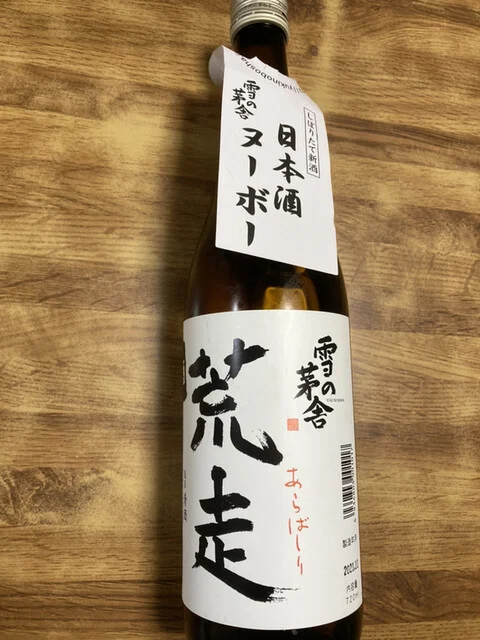 yukinobosha
しぼりたて新酒
雪の茅舎
日本酒
ヌーボー
雪の茅舎
荒走
あらばしり
製造年月
内容量
720ml